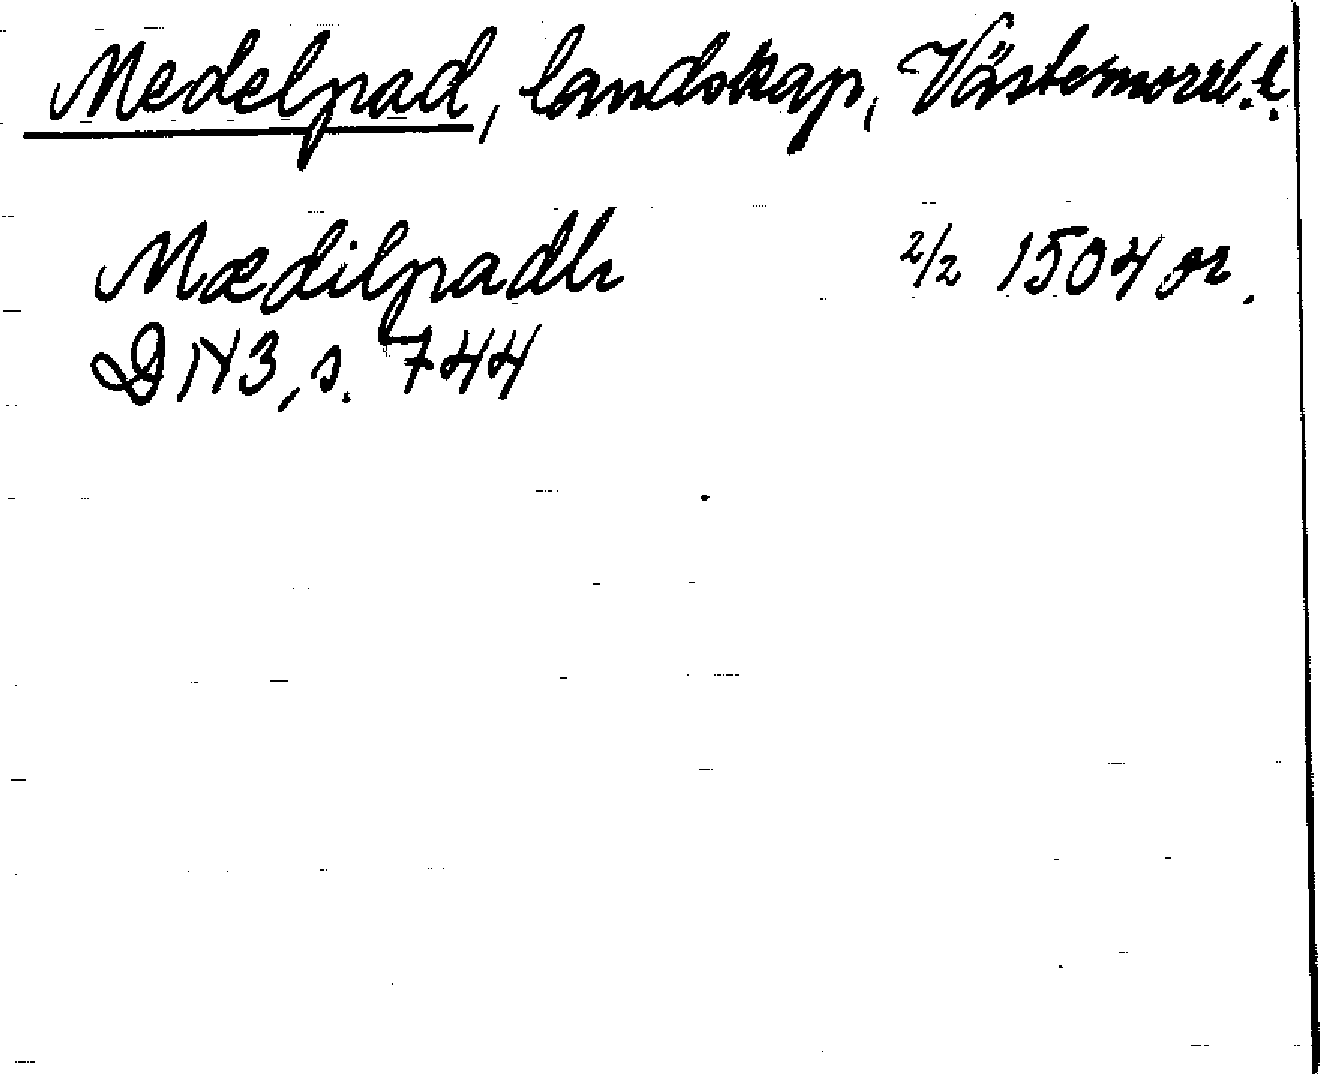 Medelpad, landskap, Västernorrl. l.
Mædilpadh 2/2 1504 or.
DN3, s. 744